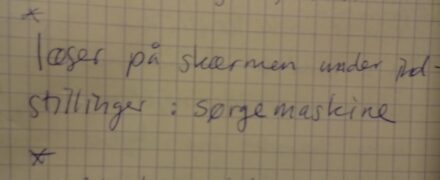 *
læser på skærmen under ind-
stillinger : sørgemaskine
*